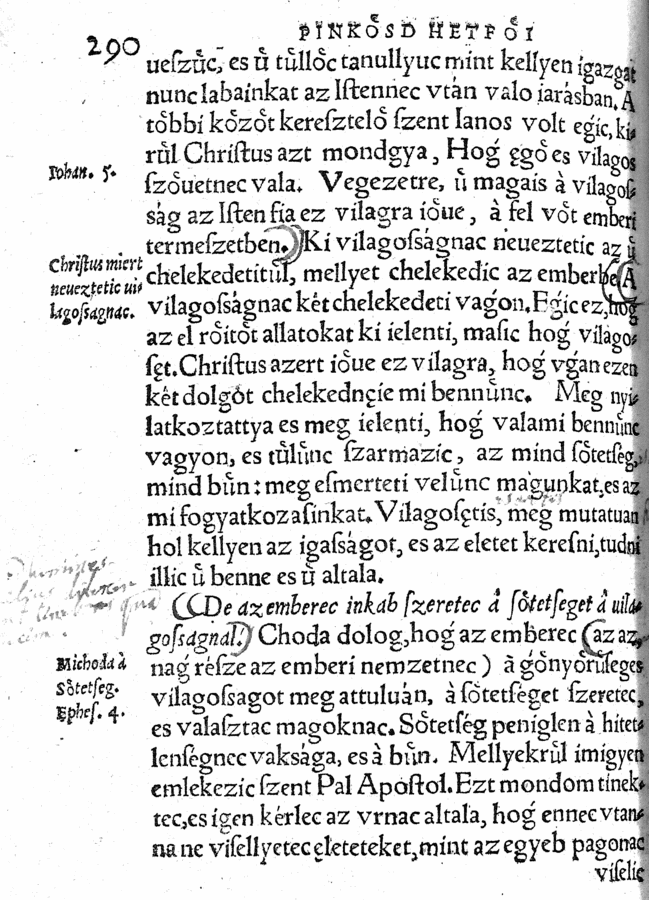 290
PINKOͤSD HETFOͤI
ueſzuͤc, es uͤ tuͤlloͤc tanullyuc mint kellyen igazgat
nunc labainkat az Iſtennec vtán valo iarásban. A
toͤbbi koͤzoͤt kereſzteloͤ ſzent Ianos volt eǵic, ki⸗
ruͤl Chriſtus azt mondgya, Hoǵ ęgoͤ es vilagos
Iohan. 5.
ſzoͤuetnec vala. Vegezetre, uͤ magais à vilagoſ⸗
ság az Iſten fia ez vilagra ioͤue, à fel voͤt emberi
termeſzetben. Ki vilagoſságnac neueztetic az uͤ
Chriſtus miert
neueztetic ui⸗
lagoſsagnac.
chelekedetituͤl, mellyet chelekedic az emberbe. A
vilagoſságnac két chelekedeti vaǵon. Eǵic ez, hoǵ
az el roͤitoͤt allatokat ki ielenti, maſic hoǵ vilago⸗
ſęt. Chriſtus azert ioͤue ez vilagra, hoǵ vǵan ezen
két dolgot chelekednęie mi bennuͤnc. Meg nyi⸗
latkoztattya es meg ielenti, hoǵ valami bennuͤnc
vagyon, es tuͤluͤnc ſzarmazic, az mind ſoͤtetſeg,
mind buͤn: meg eſmerteti veluͤnc magunkat, es az
mi fogyatkozaſinkat. Vilagoſętis, meg mutatuan
hol kellyen az igaſságot, es az eletet kereſni, tudni
illic uͤ benne es uͤ altala.
De az emberec inkab ſzeretec á ſoͤtetſeget á uila⸗
goſságnal. Choda dolog, hoǵ az emberec (az az,
Mi choda à
Soͤtetſeg.
Epheſ. 4.
naǵ réſze az emberi nemzetnec) à goͤnyoͤruͤſeges
vilagoſsagot meg attuluán, à ſoͤtetſéget ſzeretec,
es valaſztac magoknac. Soͤtetſég peniglen à hitet⸗
lenſégnec vaksága, es à buͤn. Mellyekruͤl imigyen
emlekezic ſzent Pal Apoſtol. Ezt mondom tinek⸗
tec, es igen kérlec az vrnac altala, hoǵ ennec vtan⸗
na ne viſellyetec ęleteteket, mint az egyeb pagonac
viſelic